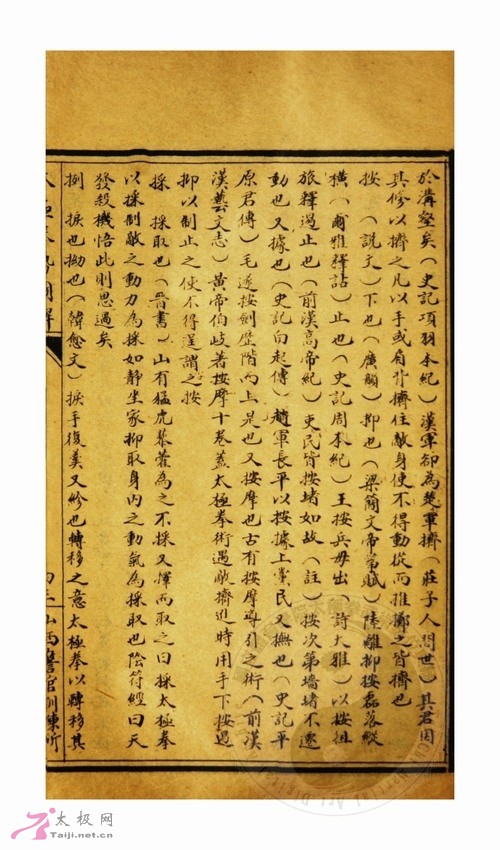 於溝壑矣（史記項羽本紀）漢軍卻為楚軍擠（莊子人間世）其君因
其修以擠之凡以手或肩背擠住敵身使不得動從而推擲之皆擠也
按（說文）下也（廣韻）抑也（梁簡文帝箏賦）陸離抑按磊落縱
橫（爾雅釋詁）止也（史記周本紀）王按兵毋出（詩大雅）以按徂
旅釋遏止也（前漢高帝紀）吏民皆按堵如故（註）按次第墻堵不遷
動也又據也（史記白起傳）趙軍長平以按據上黨民又撫也（史記平
原君傳）毛遂按劍歷階而上是也又按摩也古有按摩導引之術（前漢
漢藝文志）黃帝伯歧著按摩十卷蓋太極拳術遇敵擠進時用手下按遏
抑以制止之使不得逞謂之按
採 採取也（晉書）山有猛虎藜藿為之不採又擇而取之曰採太極拳
以採制敵之動力為採如靜坐家抑取身內之動氣為採取也陰符經曰天
發殺機悟此則思過矣
挒 捩也拗也（韓愈文）捩手復羹又紾也轉移之意太極拳以轉移其
山西警官訓練所
太极网
Taiji.net.cn